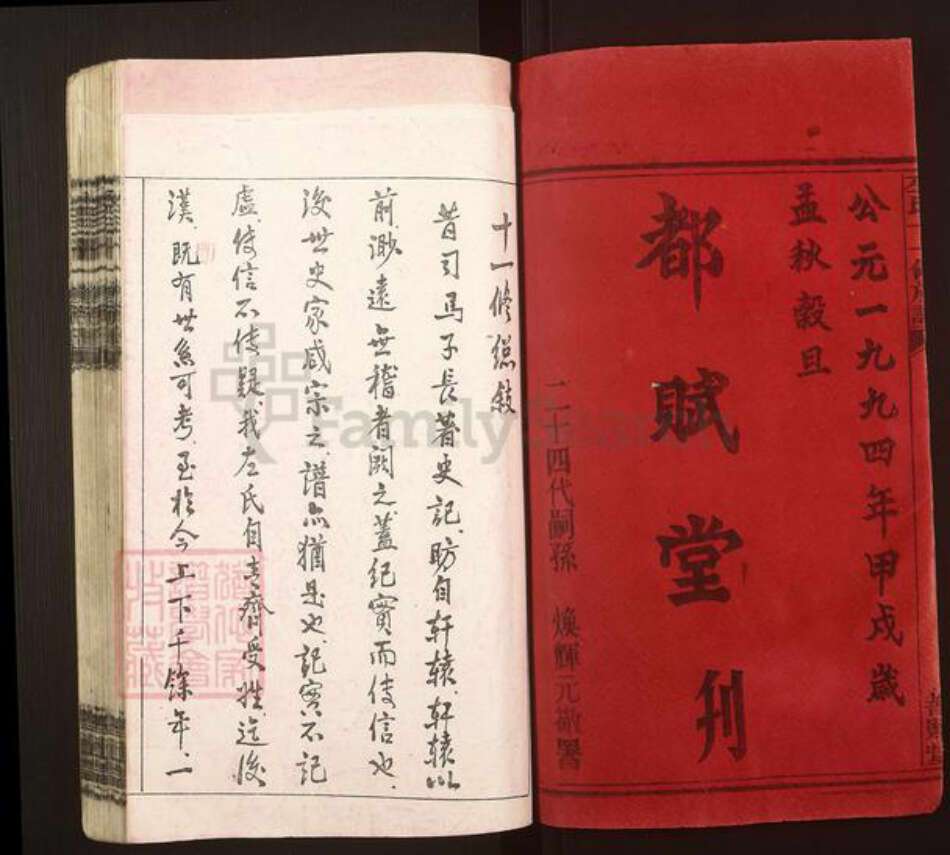 公元一九九四年甲戌歲
孟秋穀旦
都賦堂刊
二十四代嗣孫 煥輝元徵署
十一修總敍
昔司馬子長著史記、昉自轩辕、轩辕以
前、渺遠無稽者闕之、蓋紀實而传信也、
後世史家咸宗之、譜亦猶是也、記實不記
虛、传信不传疑、我左氏自青齊受姓、迄後
漢、既有世系可考、至於今上下千餘年、一
FamilySearch